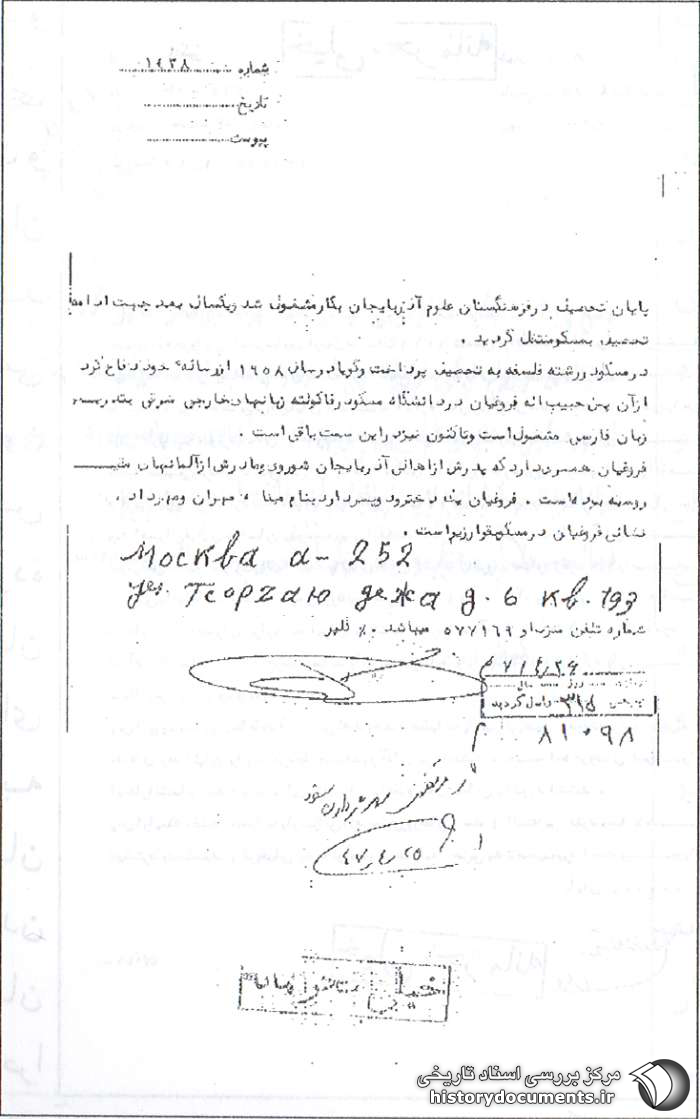 شماره ۱۴۳۸
تاریخ
پیوست
پایان تحصیل در فرهنگستان علوم آذربایجان بکار مشغول شد و یکسال بعد جهت ادامه
تحصیل بمسکو منتقل گردید .
در مسکو در رشته فلسفه به تحصیل پرداخت و گویا در سال ۱۹۵۸ از رساله خود دفاع کرد
از آن پس حبیب اله فروغیان در دانشگاه مسکو در فاکولته زبانهای خارجی شرقی بتدریس
زبان فارسی مشغول است و تاکنون نیز در این سمت باقی است .
فروغیان همسری دارد که پدرش از اهالی آذربایجان شوروی و مادرش از آلمانیهای مقیم
روسیه بوده است . فروغیان یک دختر و دو پسر دارد بنام مینا ، مهران و مهرداد .
نشانی فروغیان در مسکو بقرار زیر است .
Москва а-252
ул. Георгаю дежа д. 6 кв. 193
شماره تلفن منزل او ۵۷۷۱۶۹ میباشد
۷۱۴۱۲۶
واصل گردید
۸۱۰۹۸
۴۷,۴,۲۵
خیلی محرمانه
مرکز بررسی اسناد تاریخی
historydocuments.ir